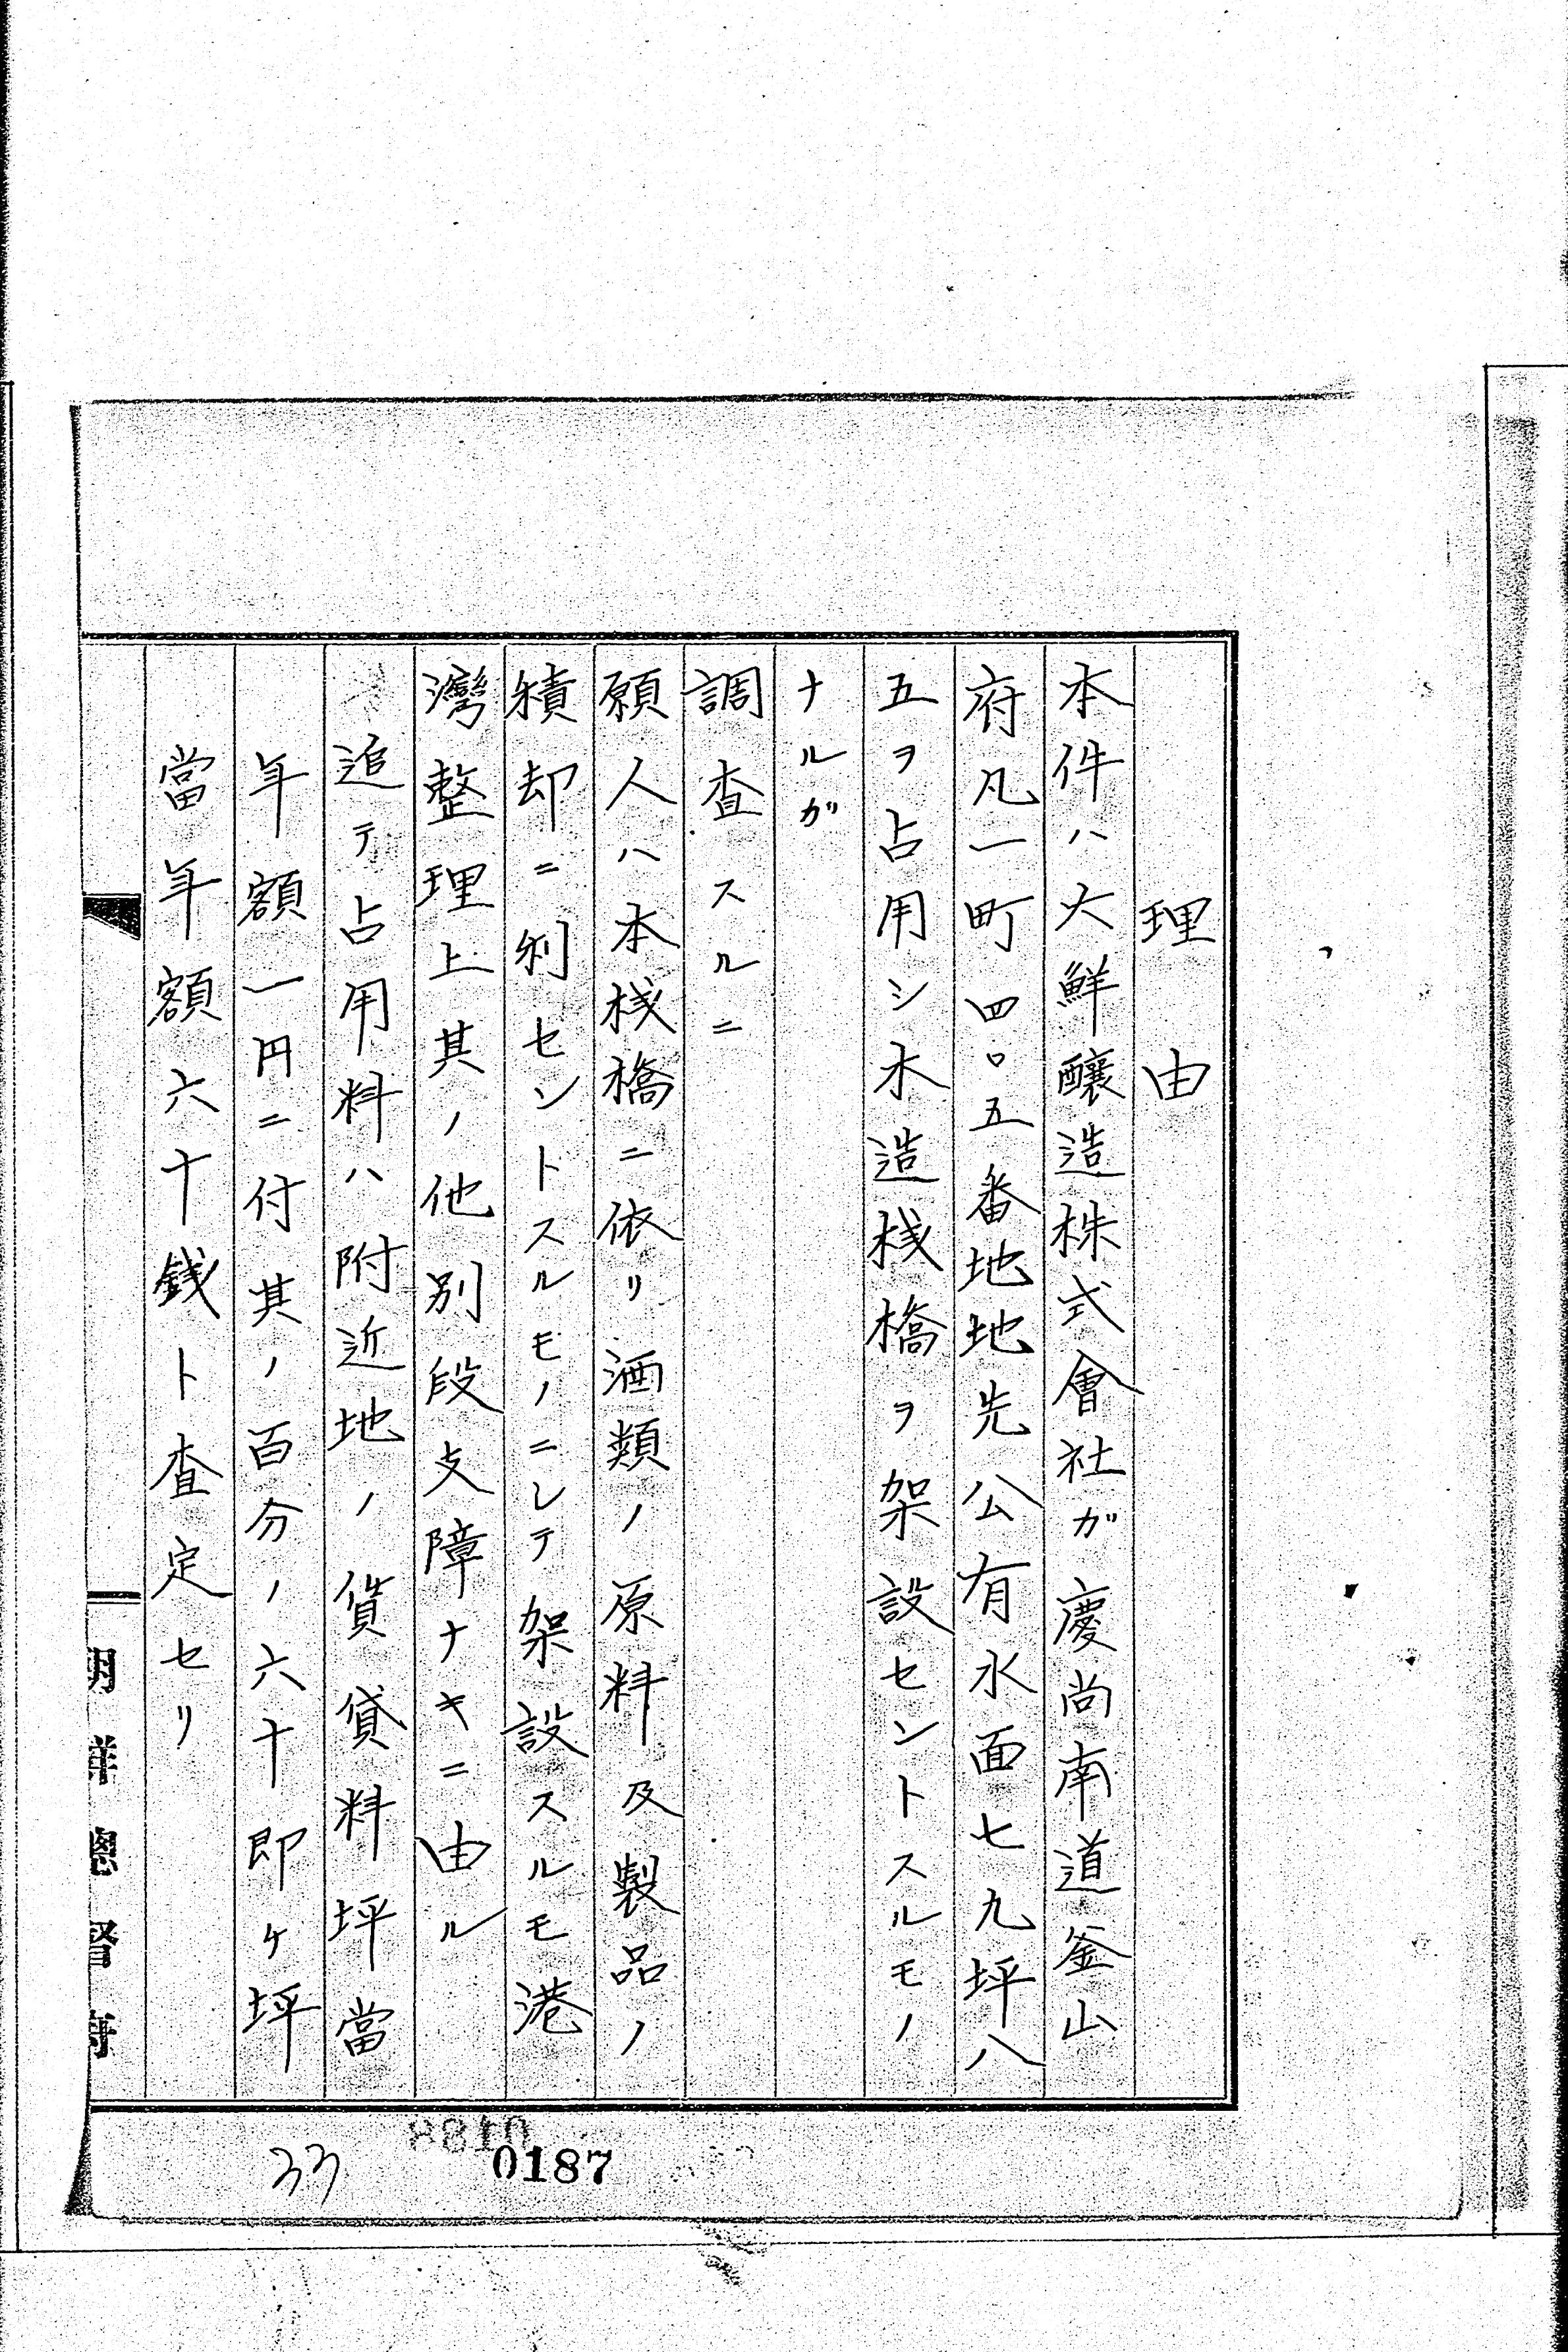 理由
本件ハ大鮮醸造株式會社ガ慶尚南道釜山
府凡一町四〇五番地地先公有水面七九坪八
五ヲ占用シ木造桟橋ヲ架設セントスルモノ
ナルガ
調査スルニ
願人ハ本桟橋ニ依リ酒類ノ原料及製品ノ
積却ニ利セントスルモノニシテ架設スルモ港
灣整理上其ノ他別段支障ナキニ由ル
追テ占用料ハ附近地ノ賃貸料坪當
年額一円ニ付其ノ百分ノ六十即ケ坪
當年額六十銭ト査定セリ
朝鮮總督府
0188
0187
33